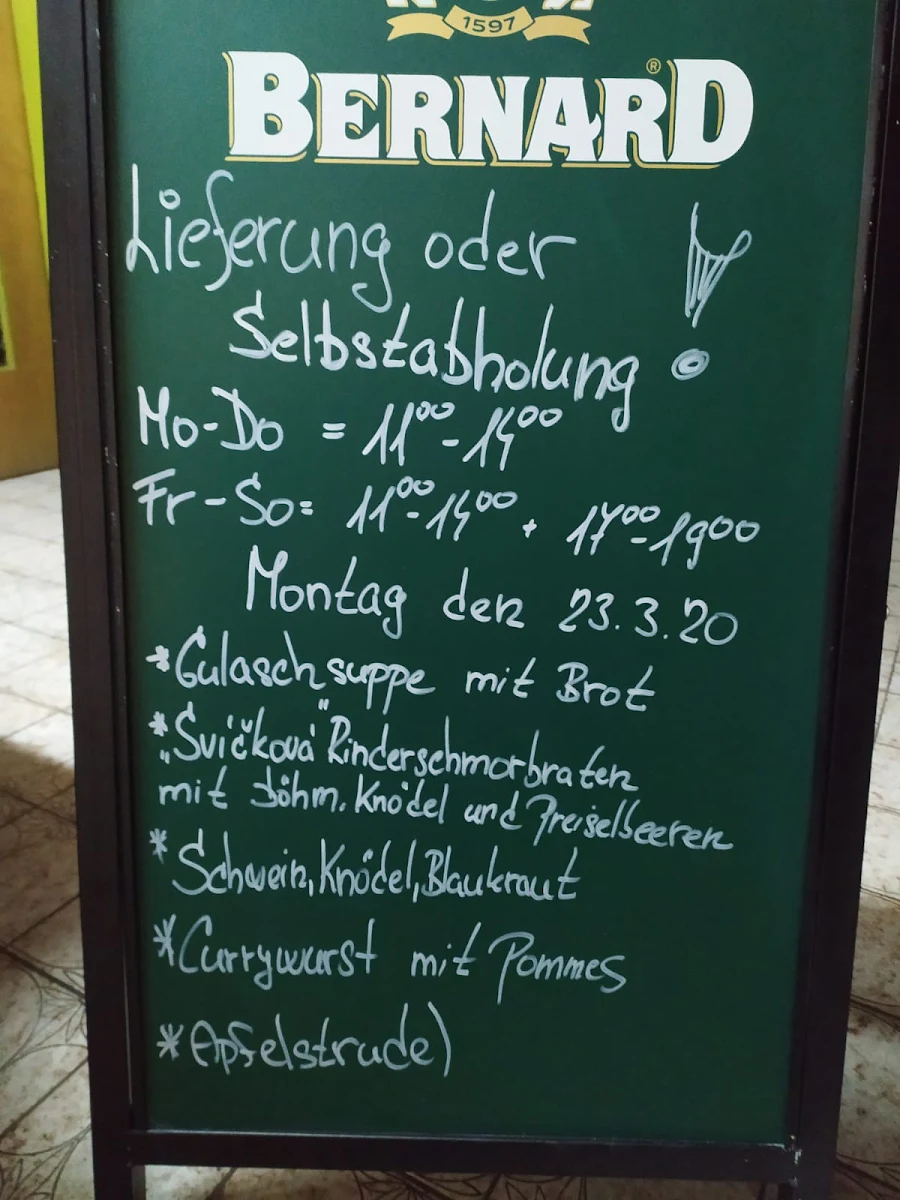 1597
BERNARD®
Lieferung oder
Selbstabholung !
Mo-Do = 11⁰⁰-14⁰⁰
Fr-So= 11⁰⁰-14⁰⁰ + 17⁰⁰-19⁰⁰
Montag den 23.3.20
*Gulaschsuppe mit Brot
*„Svíčková" Rinderschmorbraten
mit böhm. Knödel und Preiselbeeren
* Schwein, Knödel, Blaukraut
*Currywurst mit Pommes
*Apfelstrudel